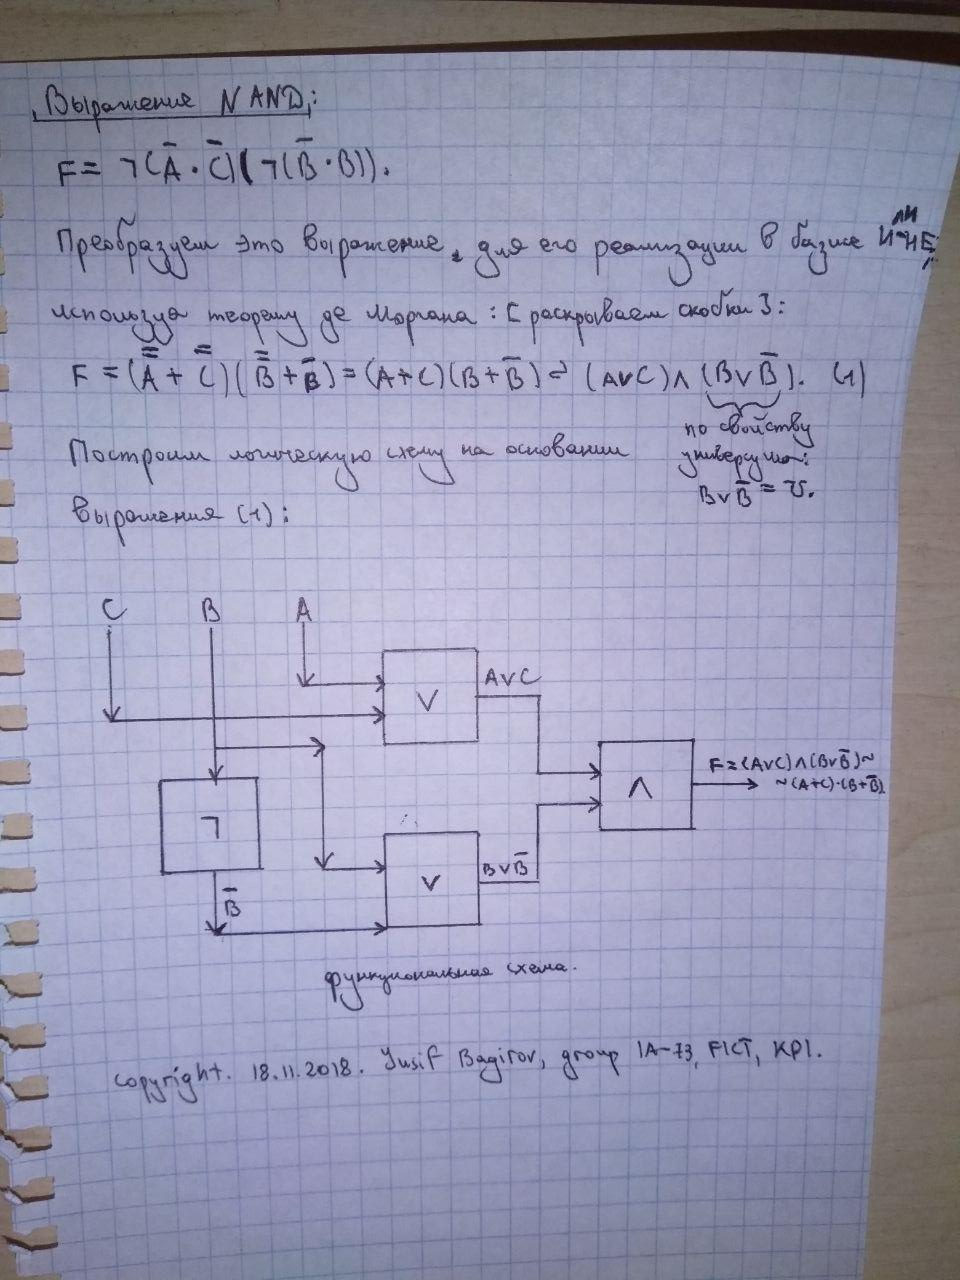 Выражение NAND:
F = ¬(A̅ · C̅)(¬(B̅ · B)).
Преобразуем это выражение, для его реализации в базисе ИЛИ-НЕ,
используя теорему де Моргана: [раскрываем скобки]:
F = (A̿ + C̿)(B̿ + B̅) = (A+C)(B+B̅) = (A∨C)∧(B∨B̅). (1)
по свойству
универсума:
B∨B̅ = U.
Построим логическую схему на основании
выражения (1):
C B A
∨
A∨C
¬
B̅
∨
B∨B̅
∧
F=(A∨C)∧(B∨B̅)~
~(A+C)·(B+B̅)
функциональная схема.
copyright. 18.11.2018. Yusif Bagirov, group IA-73, FICT, KPI.